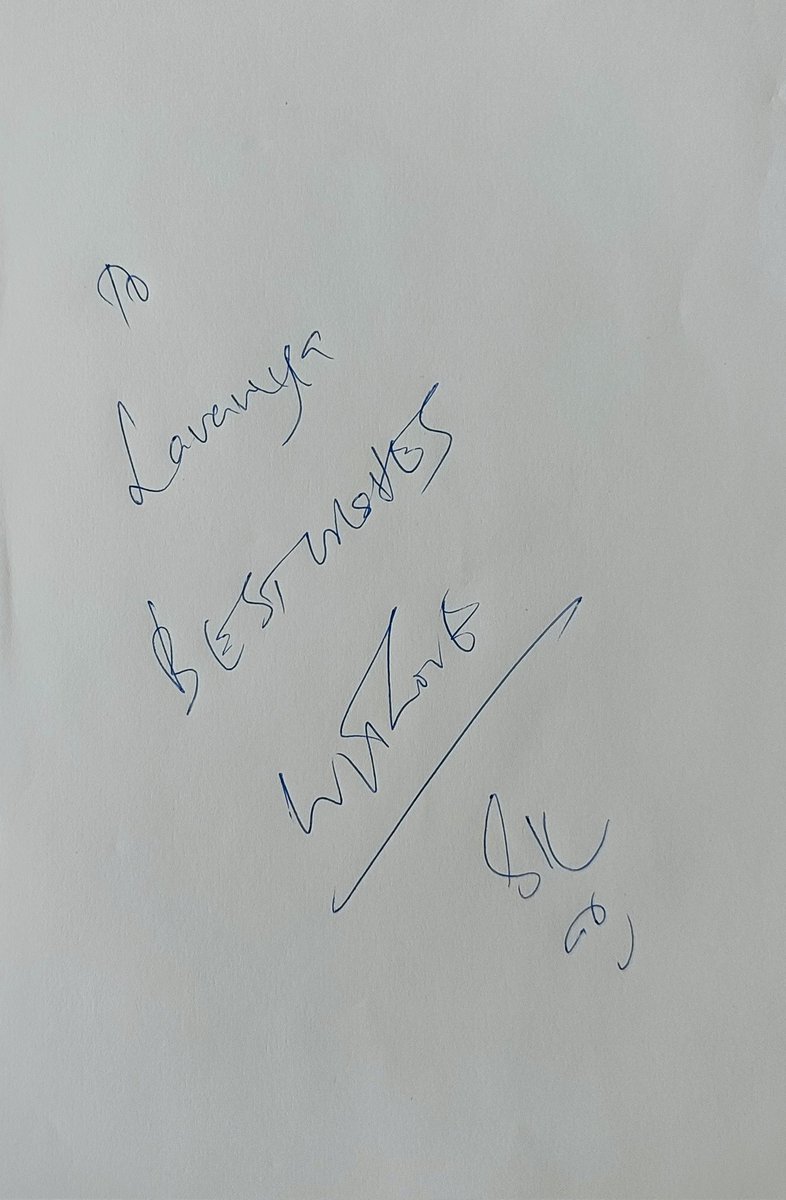 To
Lavanya
BEST WISHES
WITH LOVE
SK